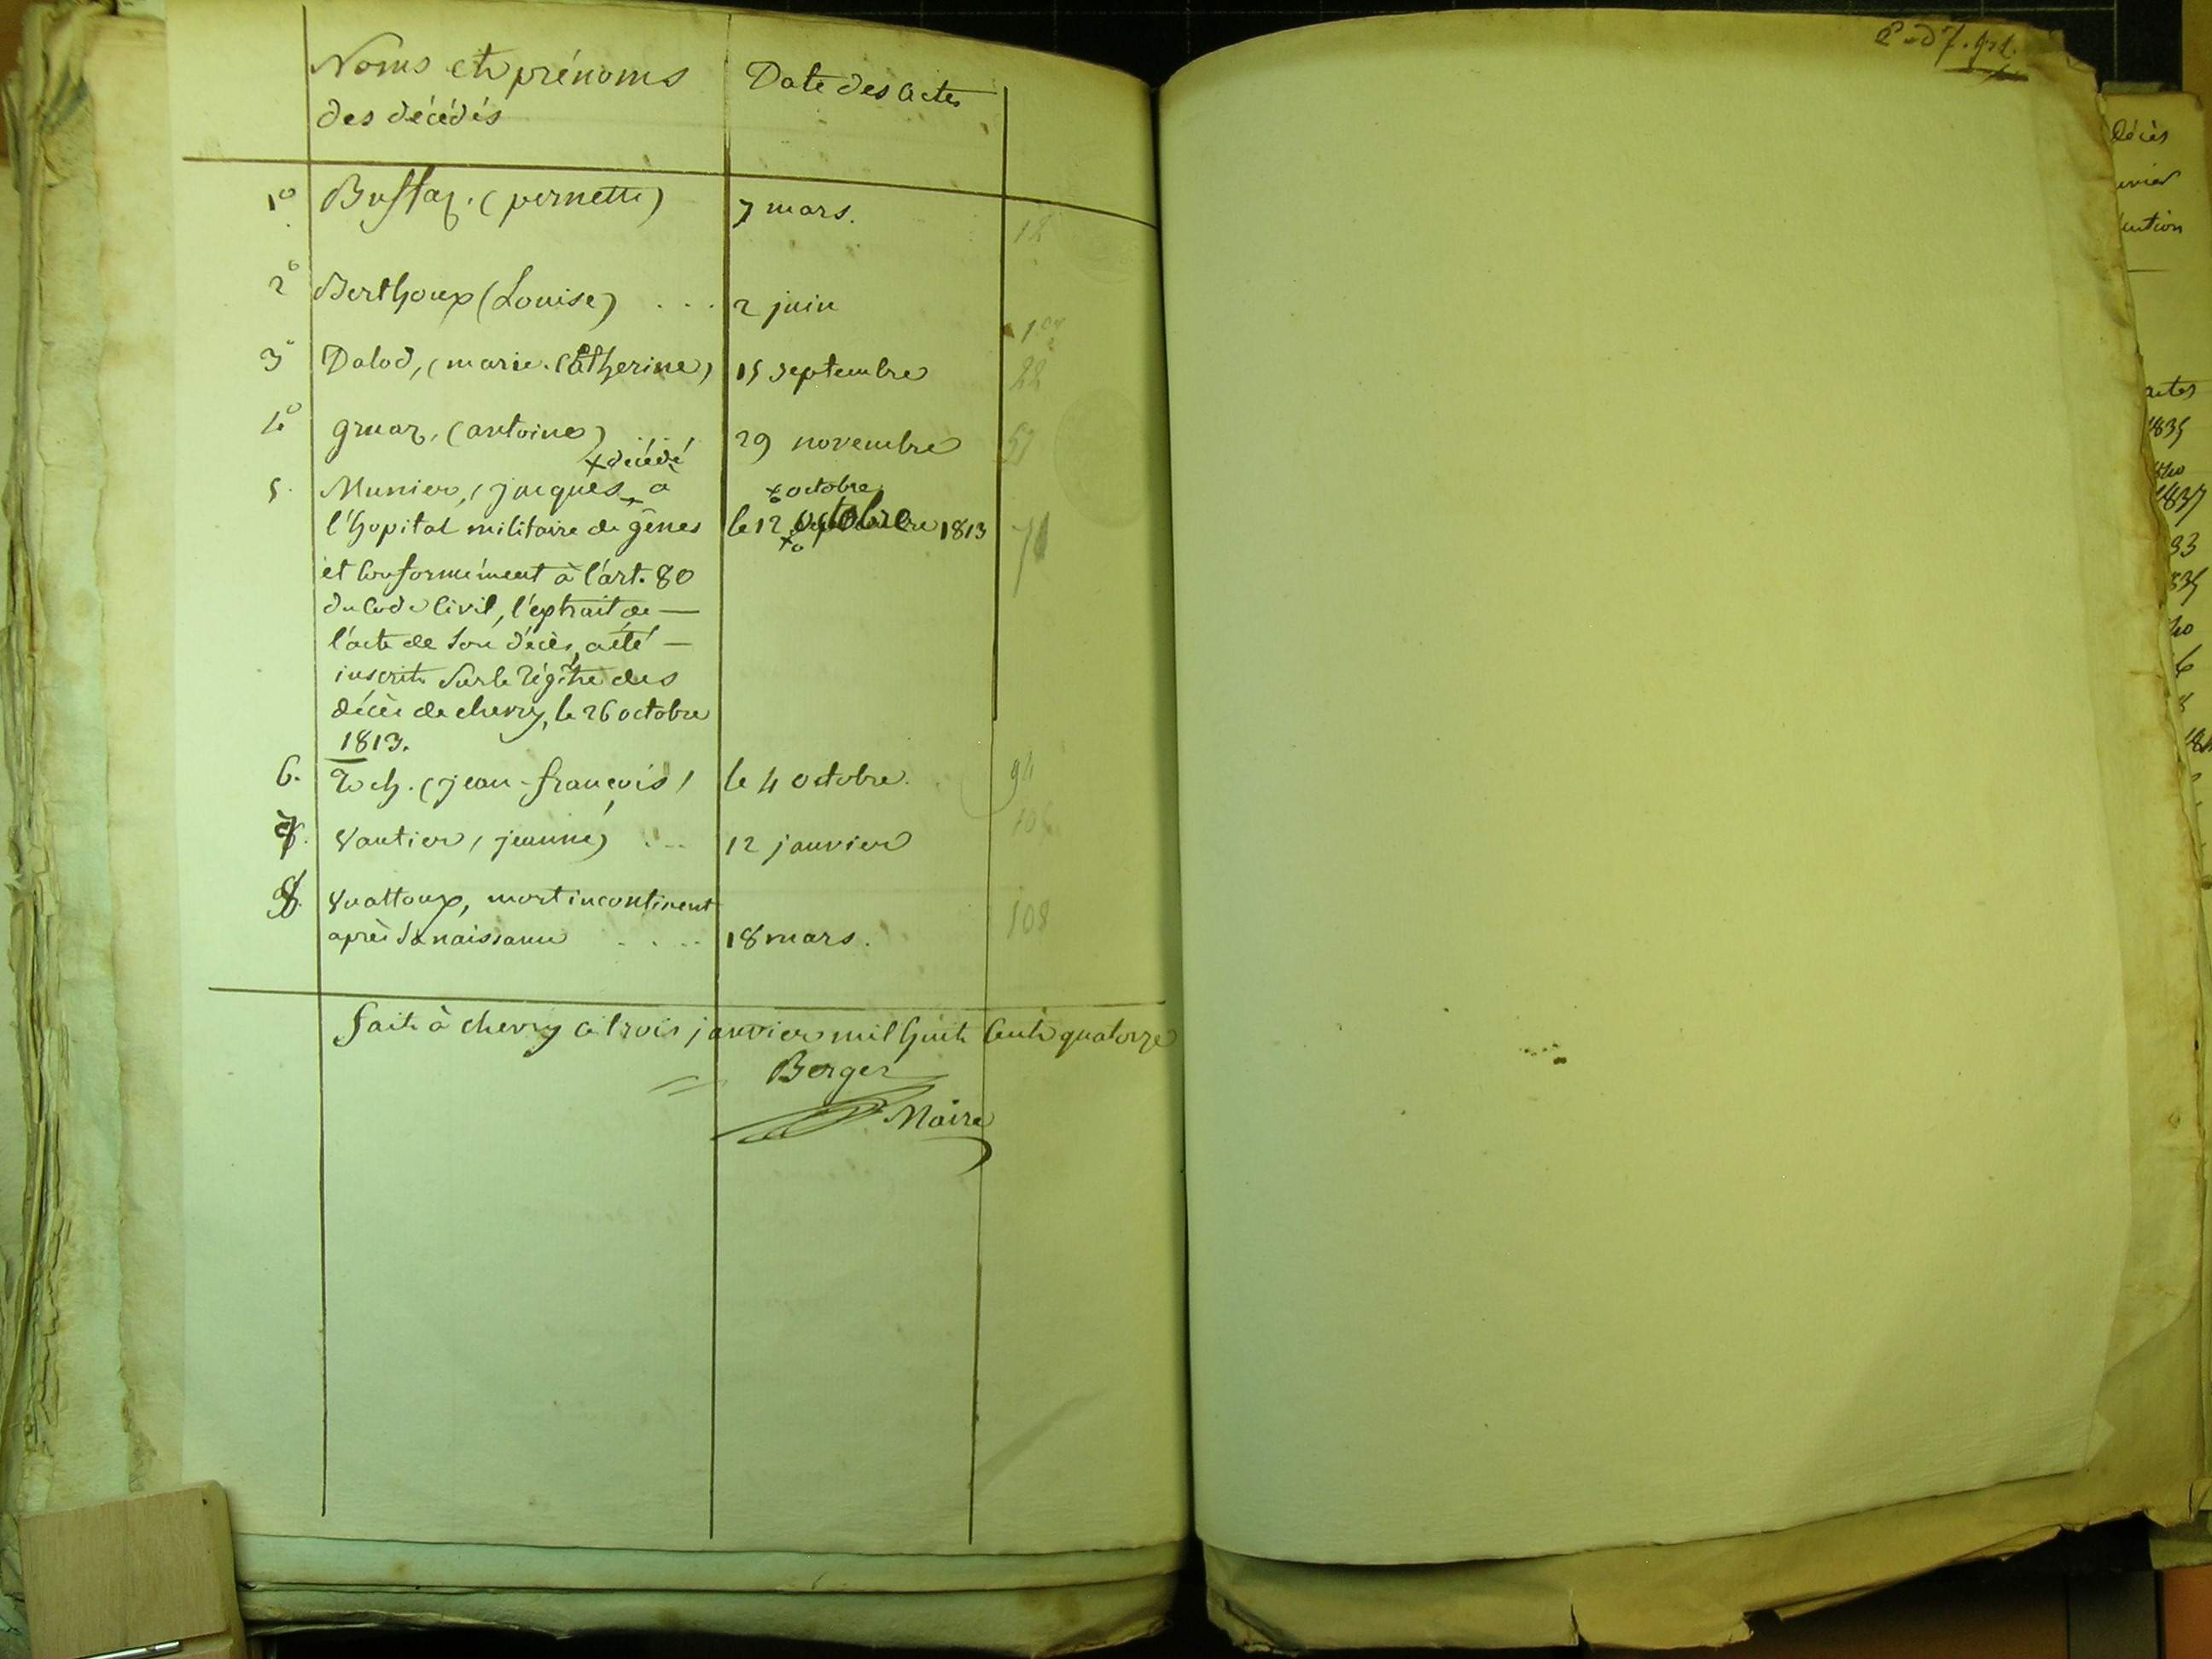 Noms et prénoms
des décédés
Date des actes
1° Bussaz. (pernette) 7 mars. 18
2° Berthoux (Louise) . . . 2 juin
3° Dalod, (marie. Catherine) 15 septembre 22
4° gruaz, (antoine) 29 novembre
+ décédé
5. Munier, (jacques + à + octobre
l'hopital militaire de gênes le 12 octobre 1813
et conformément à l'art. 80
du Code Civil, l'extrait de —
l'acte de son décès, a été —
inscrit sur le régitre des
décès de chevry, le 26 octobre
1813.
6. (jean-françois) le 4 octobre. 94
7. Vautier, (jeanne) 12 janvier 106
8. Vuattoux, mort incontinent
après sa naissance . . . . 18 mars. 108
fait à chevry ce trois janvier mil huit cent quatorze
Berger
Maire
décès
actes
1835
1837